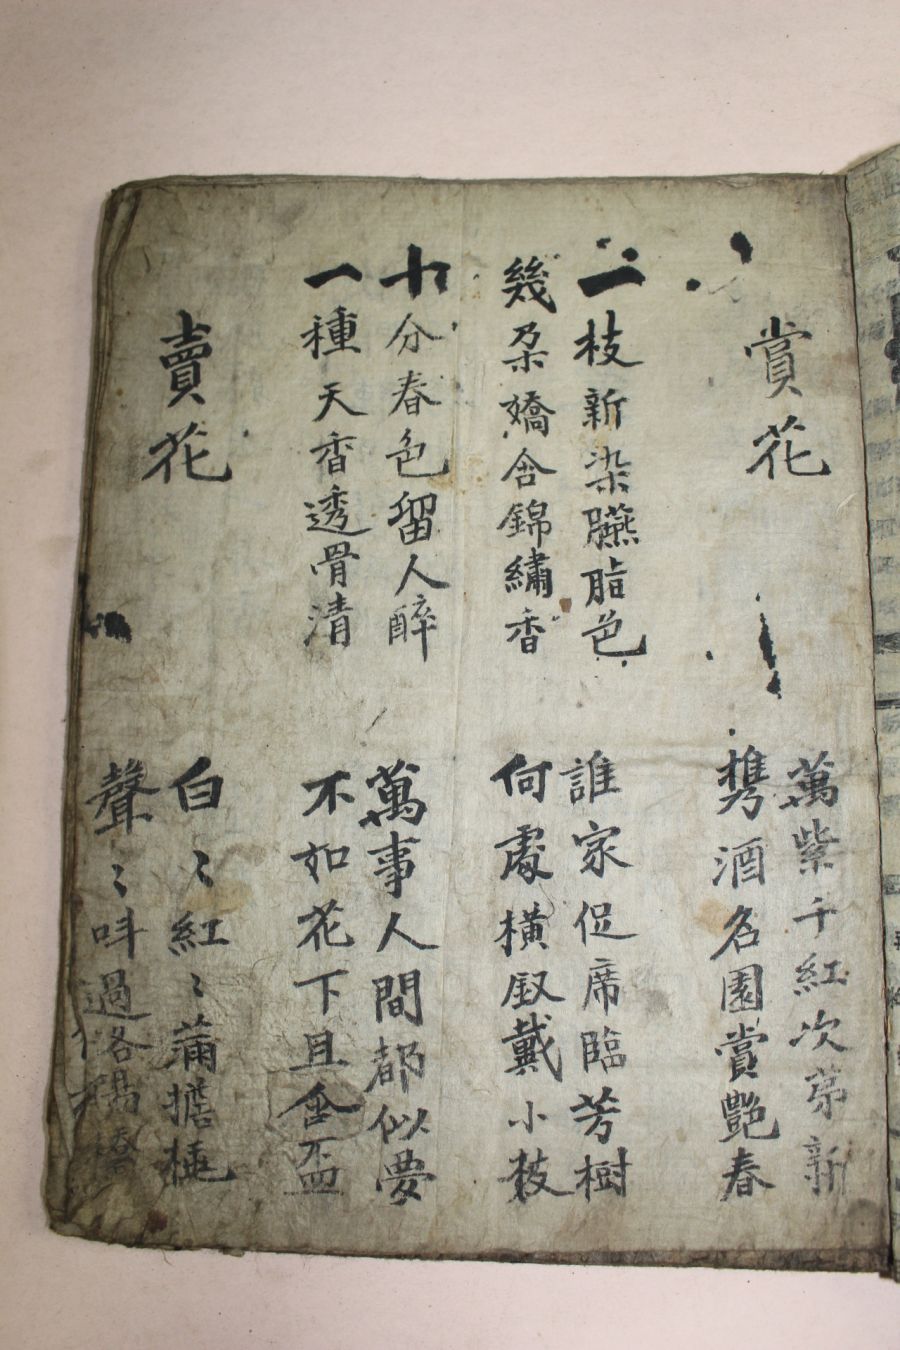 賞花
萬紫千紅次苐新
携酒名園賞艷春
二枝新染臙脂色
幾朶嬌含錦繡香
誰家促席臨芳樹
何處橫釵戴小枝
十分春色留人醉
一種天香透骨清
萬事人間都似夢
不如花下且含盃
賣花
白〻紅〻滿擔極
聲〻呌過洛陽橋